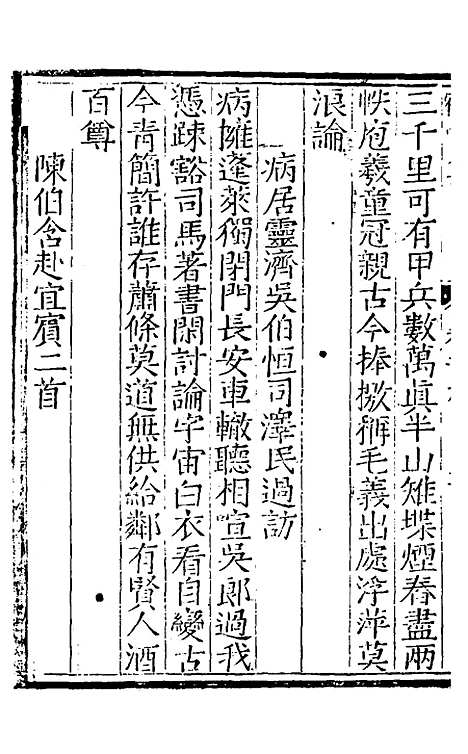 三千里可有甲兵數萬眞半山雉堞煙舂盡兩
帙庖羲童冠親古今捧檄稱毛義出處浮萍莫
浪論
病居靈濟吳伯恒司澤民過訪
病擁蓬萊獨閉門長安車轍聽相喧吳郎過我
憑疎豁司馬著書閑討論宇宙白衣看自變古
今青簡許誰存蕭條莫道無供給鄰有賢人酒
百罇
陳伯含赴宜賓二首